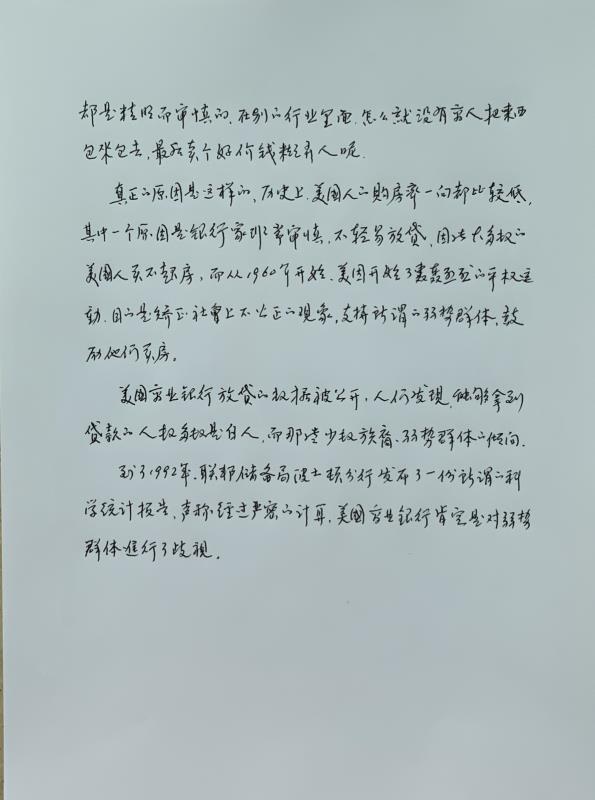 都是精明而审慎的。在别的行业里面，怎么就没有穷人把东西
包来包去，最后卖个好价钱糊弄人呢。
真正的原因是这样的，历史上，美国人的购房率一向都比较低，
其中一个原因是银行家非常审慎，不轻易放贷，因此大多数的
美国人买不起房，而从1960年开始，美国开始了轰轰烈烈的平权运
动，目的是矫正社会上不公正的现象，支持所谓的弱势群体，鼓
励他们买房。
美国商业银行放贷的数据被公开，人们发现，能够拿到
贷款的人多数是白人，而那些少数族裔、弱势群体的倾向。
到了1992年，联邦储备局波士顿分行发布了一份所谓的科
学统计报告，声称经过严密的计算，美国商业银行肯定是对弱势
群体进行了歧视。